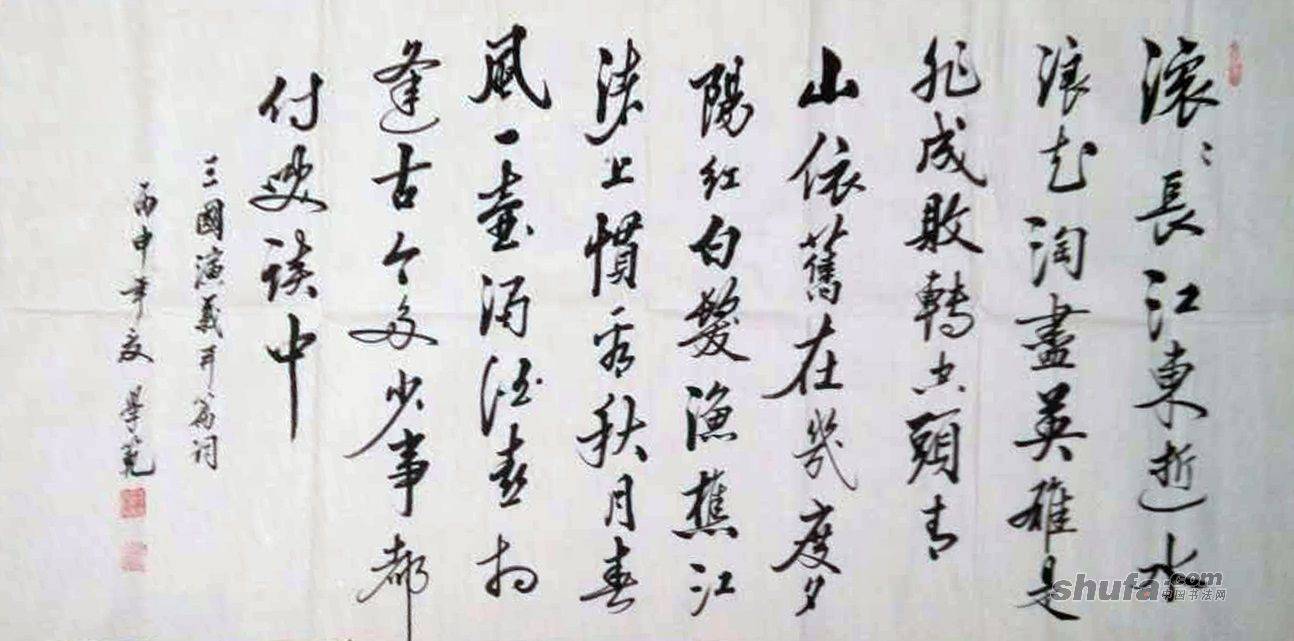 滚〻長江東逝水
浪花淘盡英雄是
非成敗轉空頭青
山依舊在幾度夕
陽紅白髮漁樵江
渚上慣看秋月春
風一壺濁酒喜相
逢古今多少事都
付笑談中
三國演義开篇词
丙申年夏學
shufa.com
中国书法网